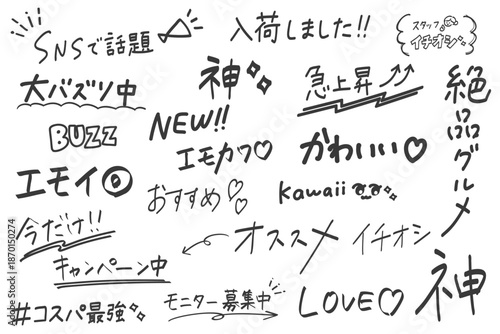 SNSで話題
入荷しました!!
スタッフ
イチオシ
大バズり中
神
急上昇
絶品グルメ
BUZZ
NEW!!
エモカワ♡
かわいい♡
エモイ
おすすめ♡
kawaii
今だけ!!
オススメ
イチオシ
キャンペーン中
神
#コスパ最強
モニター募集中
LOVE♡
Adobe Stock | #1870150274